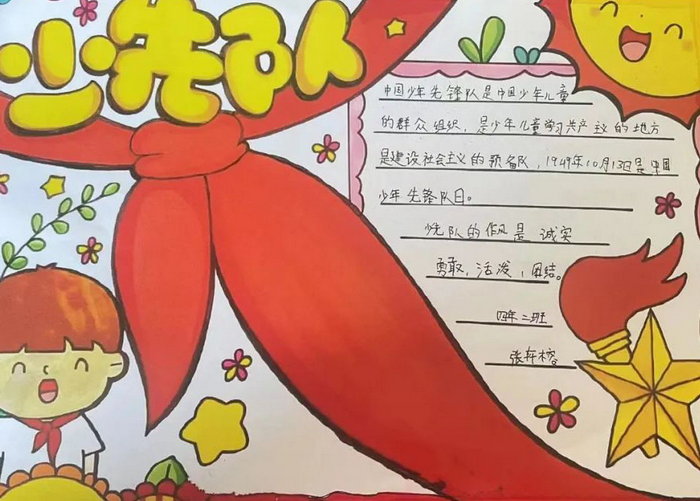 少先队
中国少年先锋队是中国少年儿童
的群众组织，是少年儿童学习共产主义的地方
是建设社会主义的预备队，1949年10月13日是中国
少年先锋队日。
少先队的作风是诚实
勇敢，活泼，团结。
四年二班